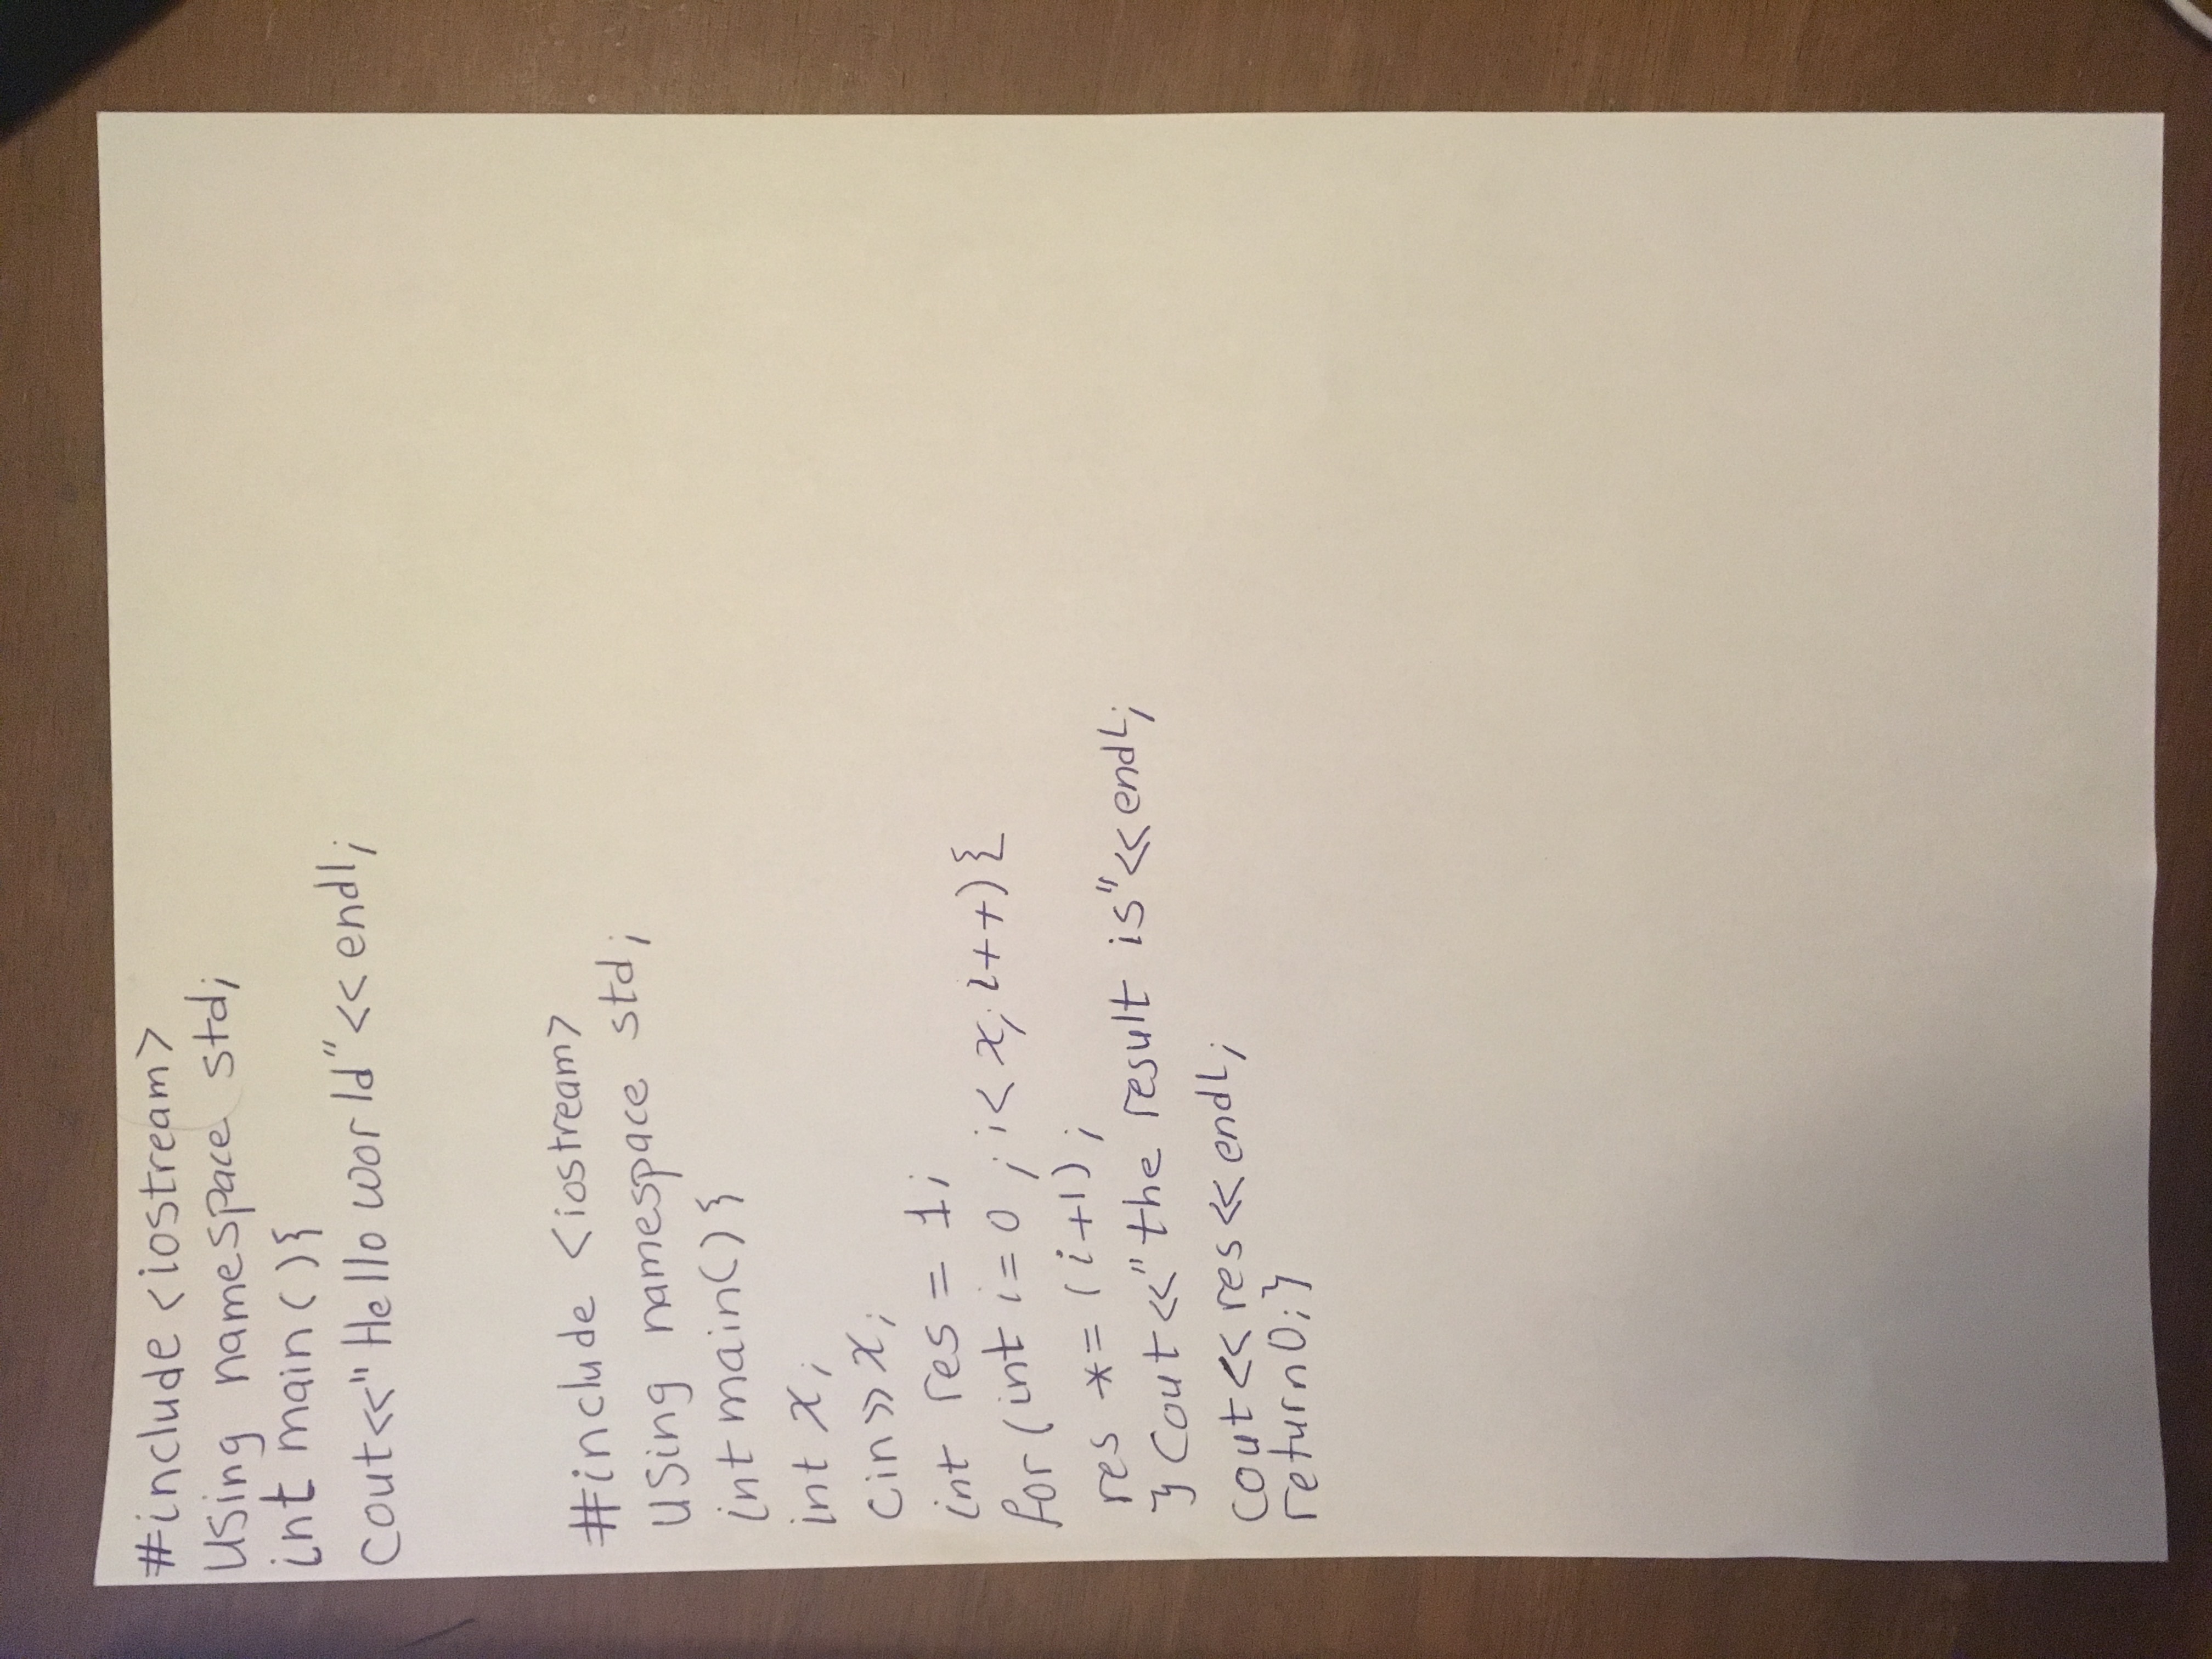 #include <iostream>
Using namespace std;
int main(){
Cout<<"Hello world"<<endl;
#include <iostream>
Using namespace std;
int main(){
int x;
Cin>>x;
int res = 1;
for(int i=0; i<x; i++){
res *= (i+1);
} Cout<<"the result is"<<endl;
cout<<res<<endl;
return 0;}